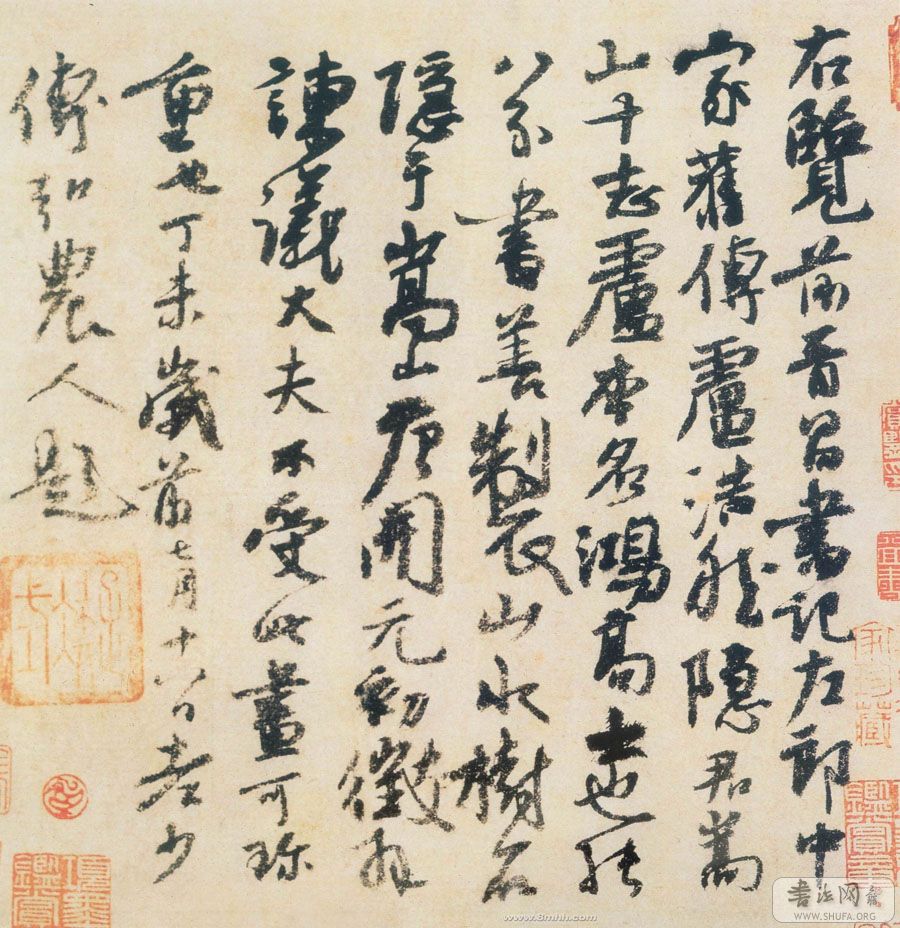 右覽前晉昌書記左郎中
家舊傳盧浩然隱君嵩
山十志盧本名鴻高士也能
八分書善製山水樹石
隱于嵩山唐開元初徵拜
諫議大夫不受此畫可珍
重也丁未歲前七月十八日老少
傅弘農人題
www.8mhh.com
WWW.SHUFA.ORG